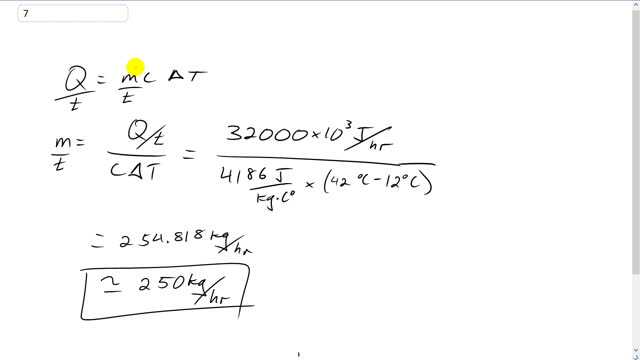 7
Q/t = m/t c ΔT
m/t = Q/t / CΔT = 32000 × 10³ J/hr / 4186 J/kg·C° × (42 °C − 12°C)
= 254.818 kg/hr
≃ 250 kg/hr